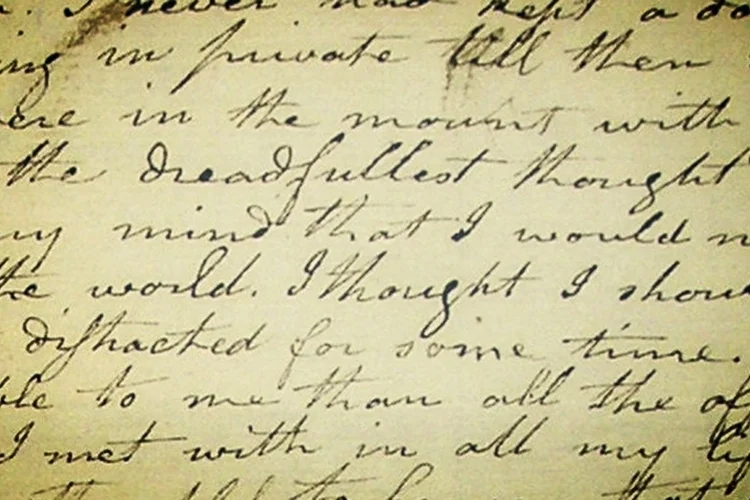 . I never had kept a da
ing in private till then
ere in the mount with
the dreadfullest thought
my mind that I would n
the world. I thought I shou
distracted for some time.
ble to me than all the af
I met with in all my li